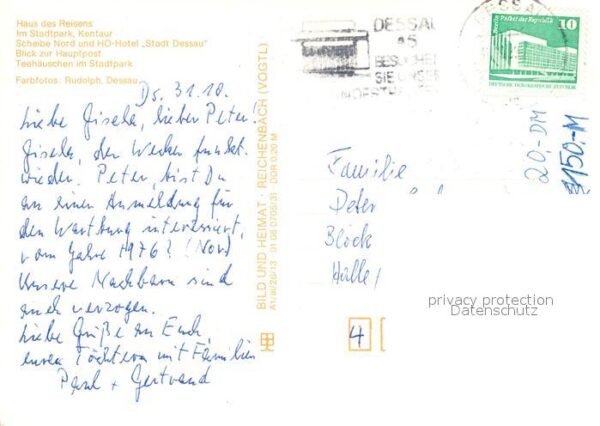 Haus des Reisens
Im Stadtpark, Kentaur
Scheibe Nord und HO-Hotel „Stadt Dessau"
Blick zur Hauptpost
Teehäuschen im Stadtpark
Farbfotos: Rudolph, Dessau
Ds. 31.10.
Liebe Gisela, lieber Peter!
Gisela, der Wecker funkt.
wieder. Peter, bist Du
an einer Anmeldung für
den Wartburg interessiert,
vom Jahre 1976? (Nov)
Unsere Nachbarn sind
auch verzogen.
Liebe Grüße an Euch
euren Töchtern mit Familien
Paul + Gertraud
BILD UND HEIMAT · REICHENBACH (VOGTL)
DDR 0,20 M
DESSAU
BESUCHEN
SIE UNSER
DESSAU
Berlin, Palast der Republik
10
DEUTSCHE DEMOKRATISCHE REPUBLIK
20,-DM
150,-M
Familie
Peter
Block
Halle
4
privacy protection
Datenschutz